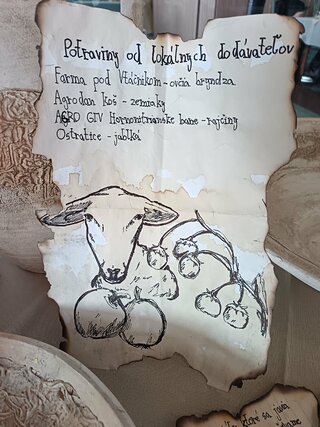 Potraviny od lokálnych dodávateľov
Farma pod Vtáčnikom - ovčia bryndza
Agrodan Koš - zemiaky
AGRO GTV Hornonitrianske bane - rajčiny
Ostratice - jablká
ktoré sa javí